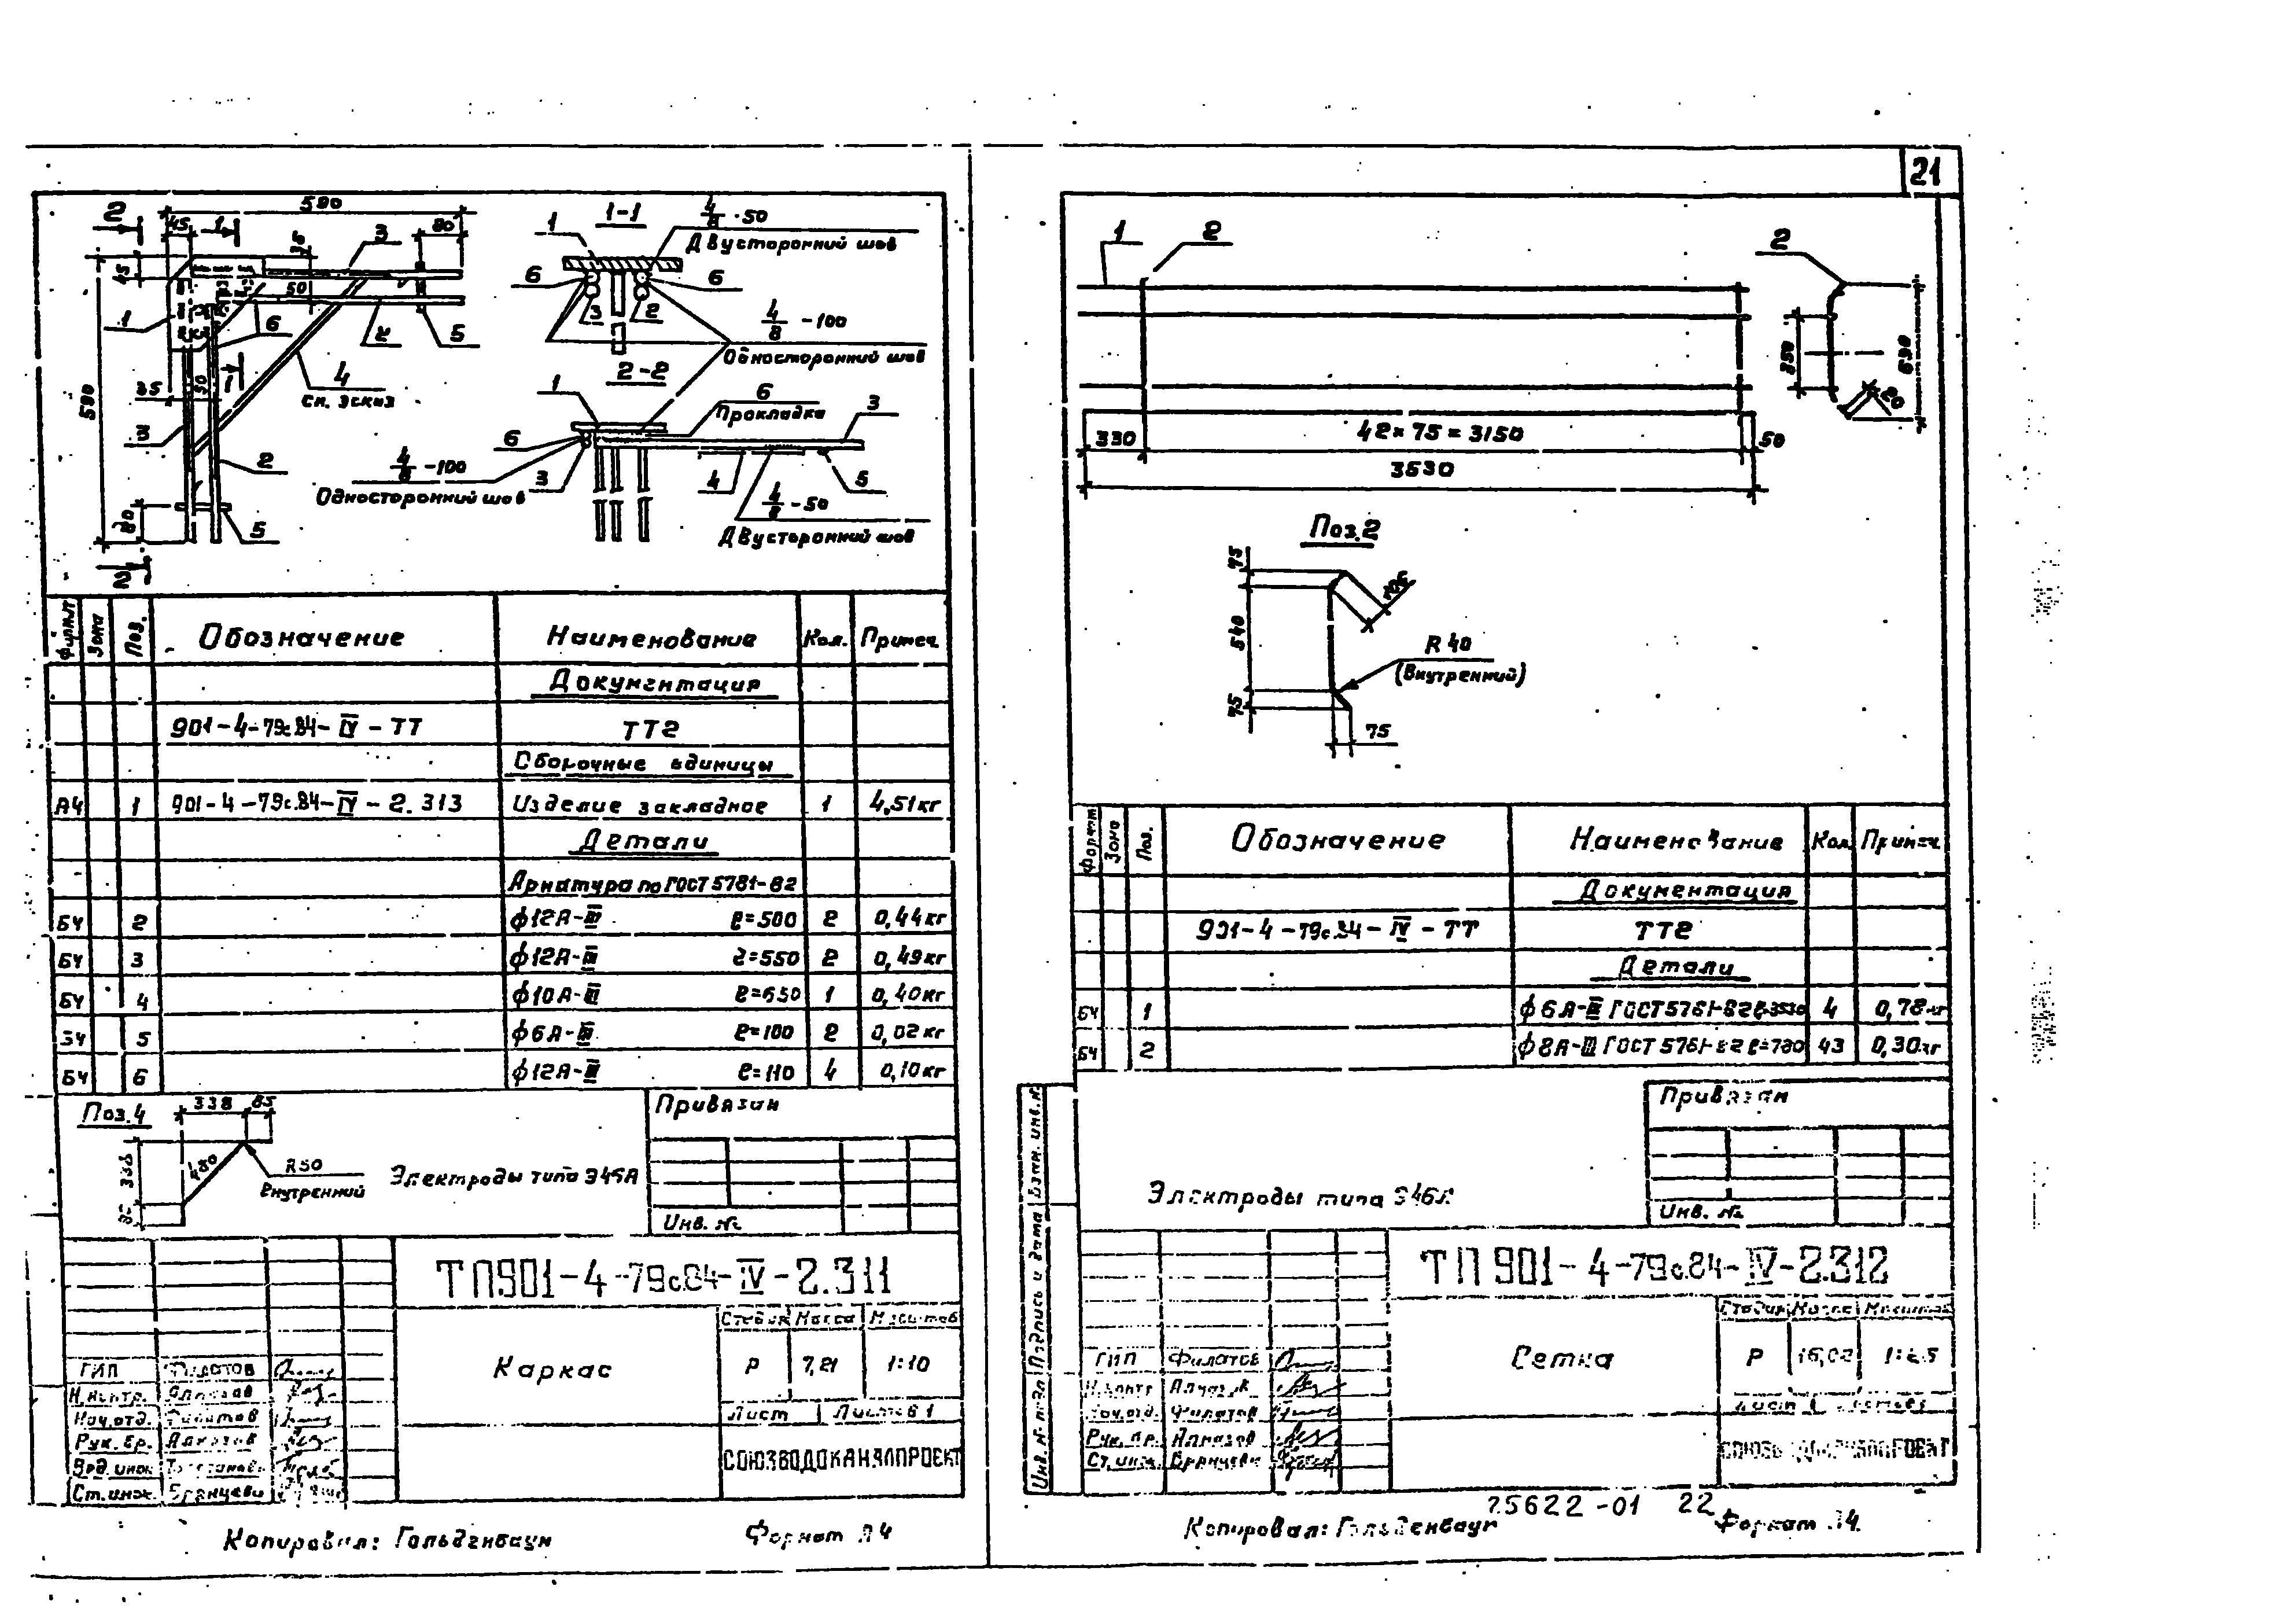 21
2
590
45
1
80
3
45
50
1
6
2
5
590
35
50
1
4
См. эскиз
3
2
80
5
2
1-1
1
4/8 - 50
Двусторонний шов
6
6
3
2
4/8 - 100
Односторонний шов
2-2
1
6
Прокладка
3
6
4/8 - 100
3
Односторонний шов
4
5
4/8 - 50
Двусторонний шов
Формат Зона Поз. Обозначение Наименование Кол. Примеч.
Документация
901-4-79с.84-IV-ТТ ТТ2
Сборочные единицы
А4 1 901-4-79с.84-IV-2.313 Изделие закладное 1 4,51кг
Детали
Арматура по ГОСТ 5781-82
БЧ 2 ф12А-III ℓ=500 2 0,44кг
БЧ 3 ф12А-III ℓ=550 2 0,49кг
БЧ 4 ф10А-III ℓ=650 1 0,40кг
БЧ 5 ф6А-III ℓ=100 2 0,02кг
БЧ 6 ф12А-III ℓ=110 4 0,10кг
Поз.4
338 85
338
480
R50
Внутренний
Электроды типа Э46А
Привязан
Инв. №
ТП901-4-79с.84-IV-2.311
Каркас
Стадия Масса Масштаб
Р 7,21 1:10
Лист Листов 1
СОЮЗВОДОКАНАЛПРОЕКТ
ГИП Филатов
Н.контр. Алмазов
Нач.отд. Филатов
Рук. бр. Алмазов
Вед. инж.
Ст. инж.
Копировал: Гольденбаум Формат А4
1
2
2
350
690
80
330
42×75=3150
50
3530
Поз.2
75
540
75
R40
(Внутренний)
75
Формат Зона Поз. Обозначение Наименование Кол. Примеч
Документация
901-4-79с.84-IV-ТТ ТТ2
Детали
БЧ 1 ф6А-III ГОСТ 5781-82 ℓ=3530 4 0,78кг
БЧ 2 ф8А-III ГОСТ 5781-82 ℓ=760 43 0,30кг
Привязан
Инв. №
Электроды типа Э46А
Инв. № подл. Подпись и дата Взам. инв. №
ТП901-4-79с.84-IV-2.312
Сетка
Стадия Масса Масштаб
Р 16,02 1:25
Лист Листов 1
СОЮЗВОДОКАНАЛПРОЕКТ
ГИП Филатов
Н.контр Алмазов
Нач.отд. Филатов
Рук. бр. Алмазов
Ст. инж.
25622-01 22
Копировал: Гольденбаум Формат А4